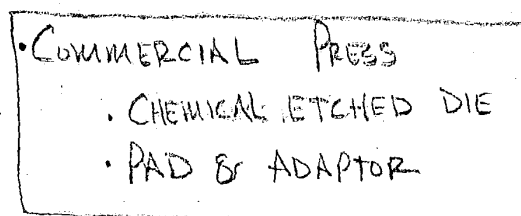 · COMMERCIAL PRESS
· CHEMICAL ETCHED DIE
· PAD & ADAPTOR